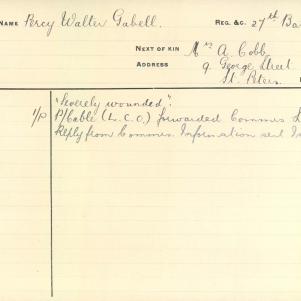 NAME Percy Walter Gabell. REG. &C. 27th Ba
NEXT OF KIN Mrs A. Cobb
ADDRESS 9 George Street
St. Peters.
"Severely wounded".
1/P P/Cable (L.C.O.) forwarded Commrs
Reply from Commrs. Information sent